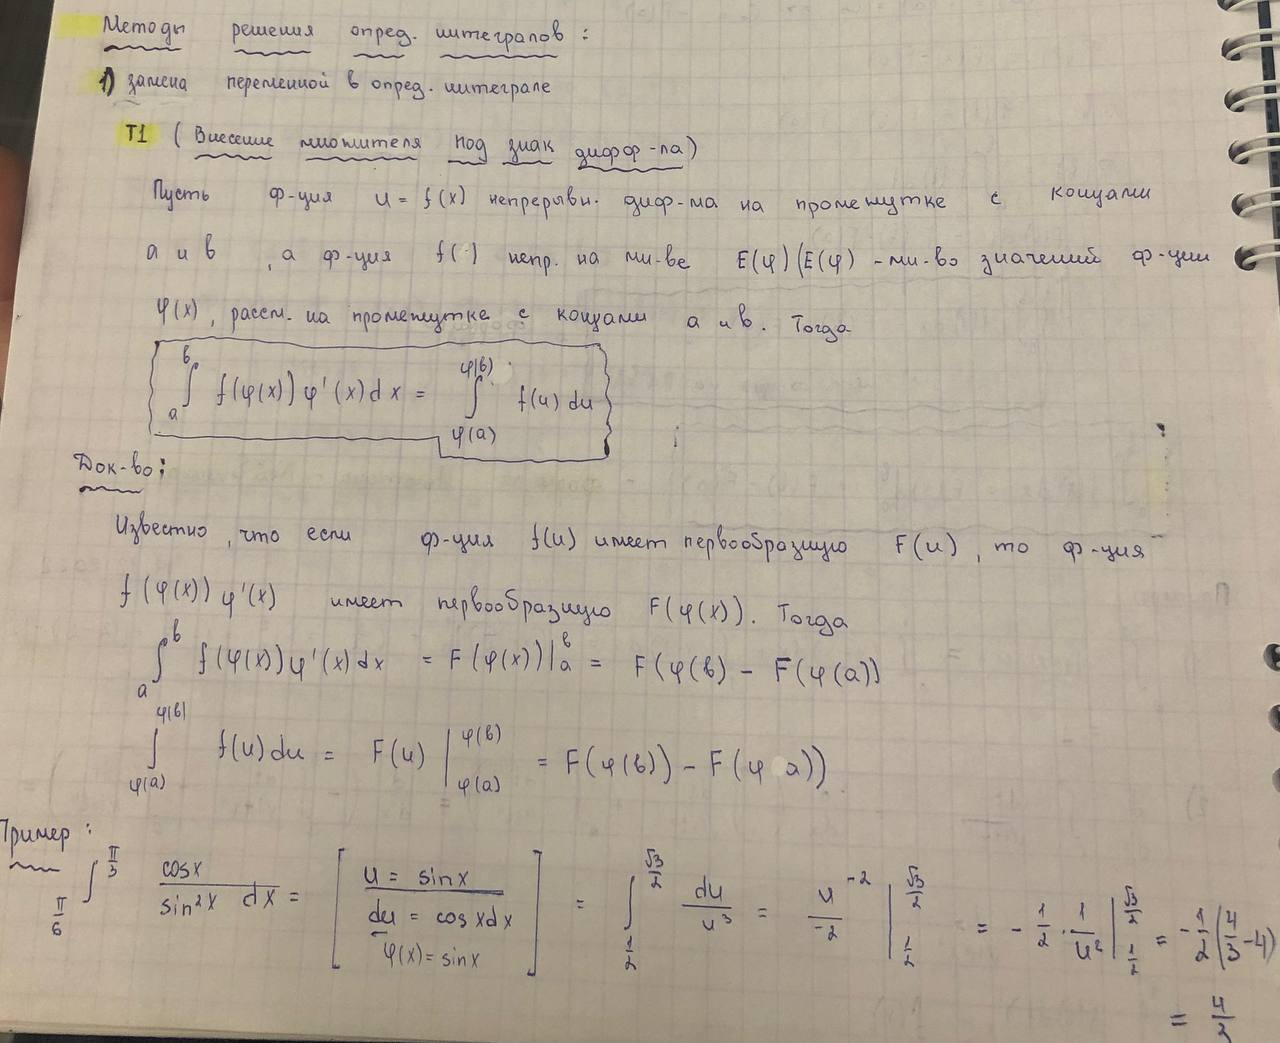 Методы решения опред. интегралов:
1) замена переменной в опред. интеграле
Т1 (Внесение множителя под знак дифф-ла)
Пусть ф-ция u = f(x) непрерывн. диф-ма на промежутке с концами
a и b, а ф-ция f(·) непр. на мн-ве E(φ) (E(φ) - мн-во значений ф-ции
φ(x), рассм. на промежутке с концами a и b. Тогда
∫_a^b f(φ(x)) φ'(x) dx = ∫_{φ(a)}^{φ(b)} f(u) du
Док-во:
Известно, что если ф-ция f(u) имеет первообразную F(u), то ф-ция
f(φ(x)) φ'(x) имеет первообразную F(φ(x)). Тогда
∫_a^b f(φ(x)) φ'(x) dx = F(φ(x))|_a^b = F(φ(b) - F(φ(a))
∫_{φ(a)}^{φ(b)} f(u) du = F(u)|_{φ(a)}^{φ(b)} = F(φ(b)) - F(φ a))
Пример:
∫_{π/6}^{π/3} cosx/sin²x dx = [u = sinx
du = cosxdx
φ(x) = sinx] = ∫_{1/2}^{√3/2} du/u³ = u^{-2}/-2 |_{1/2}^{√3/2} = -1/2 · 1/u² |_{1/2}^{√3/2} = -1/2(4/3-4)
= 4/3